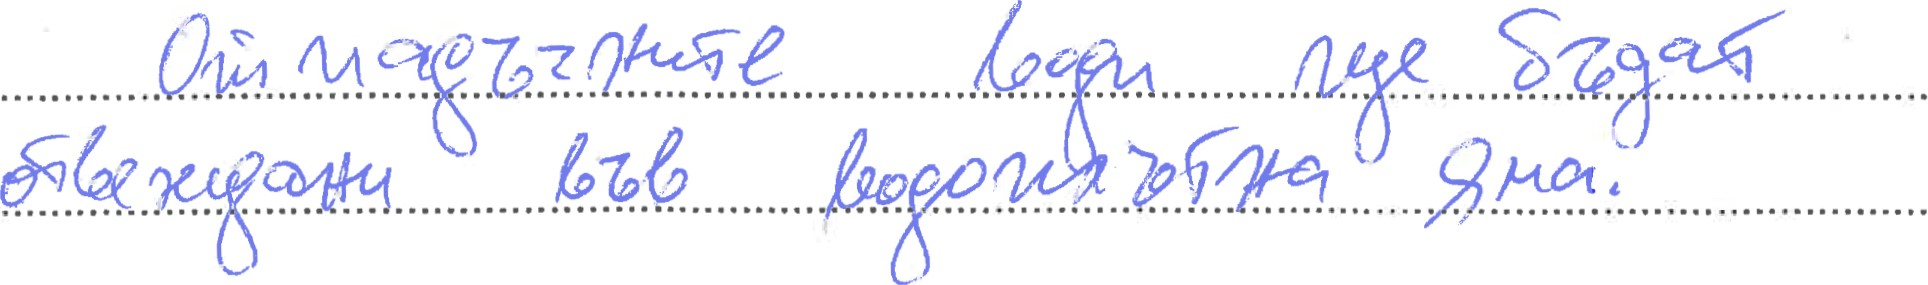 Отпадъчните води ще бъдат
отвеждани във водоплътна яма.